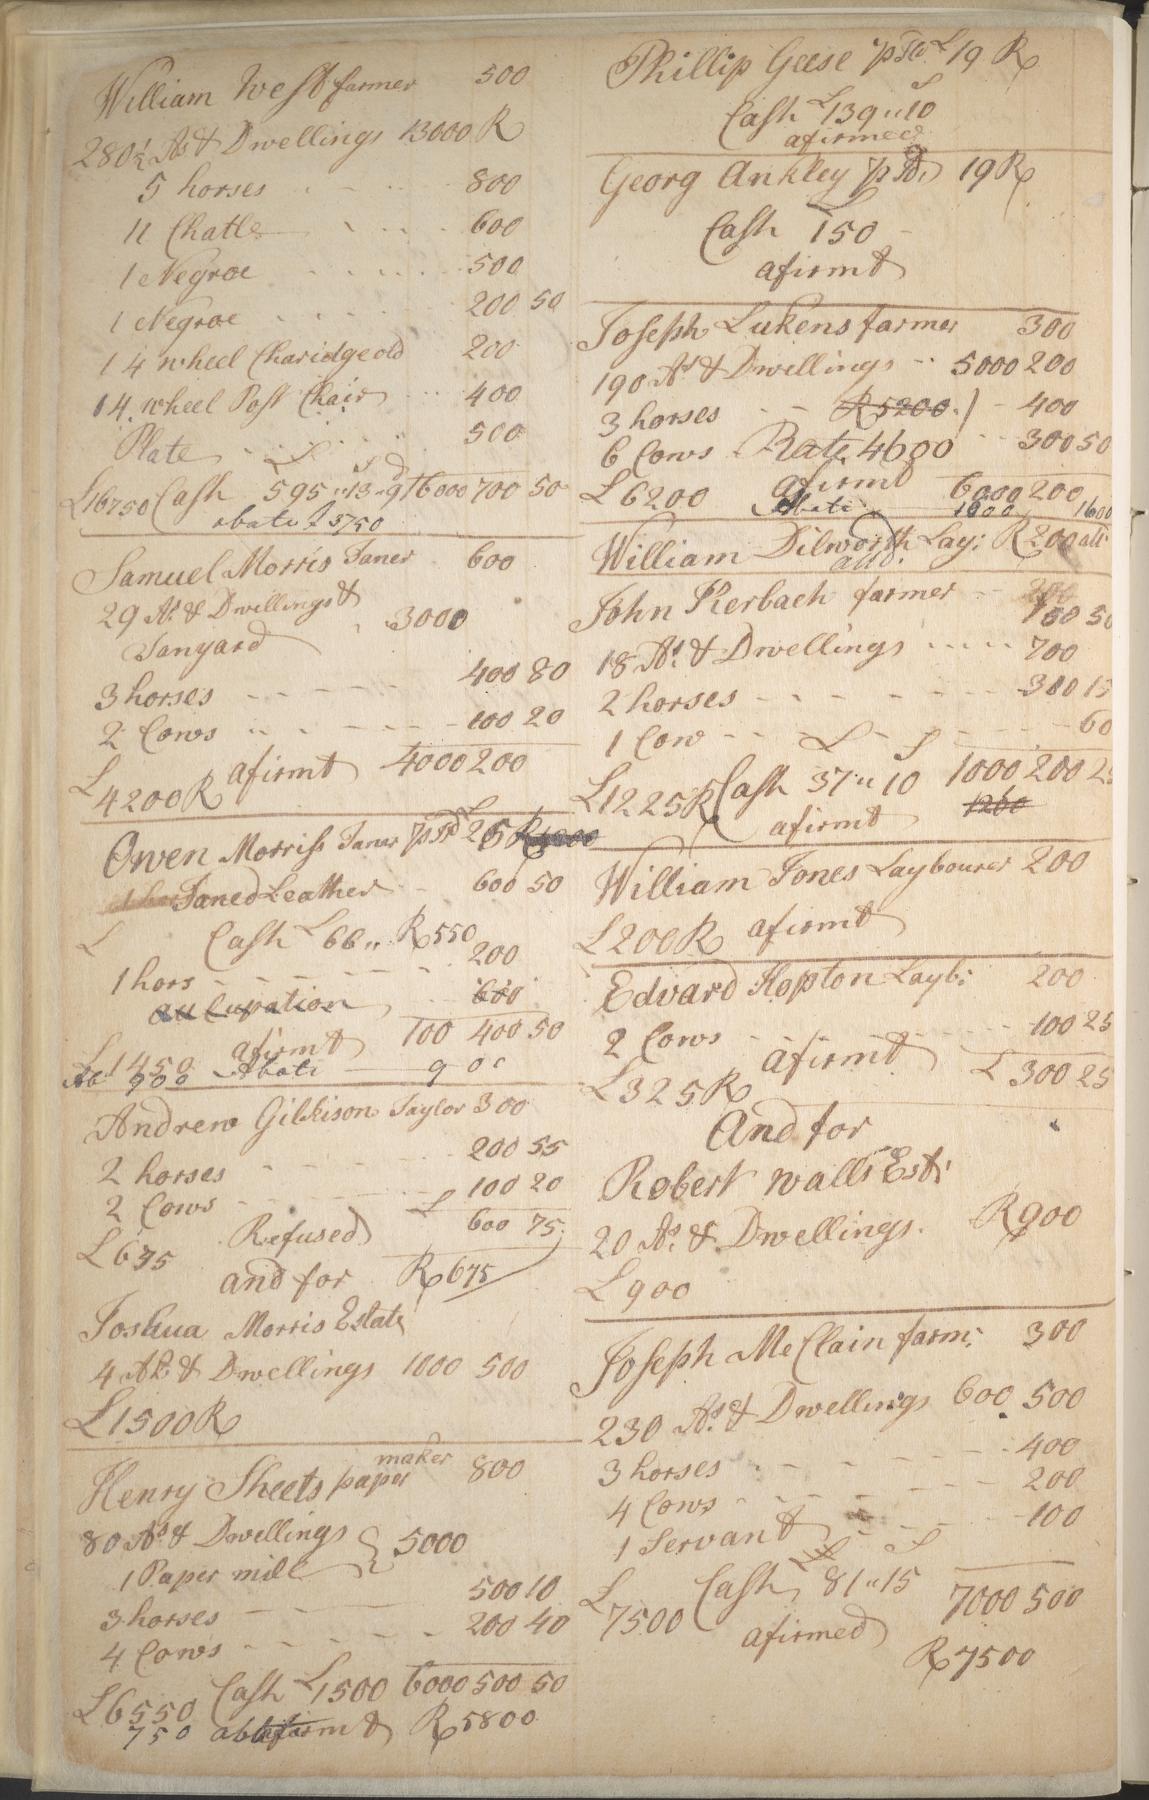 William West farmer 500
280½ As & Dwellings 13000 R
5 horses 800
11 Chatle 600
1 Negroe 500
1 Negroe 200 50
1 4 wheel Charidge old 200
1 4 wheel Post Chair 400
Plate 500
£16750 Cash £595 s13 d9 16000 700 50
abate £3750
Samuel Morris Taner 600
29 As & Dwellings &
Tanyard 3000
3 horses 400 80
2 Cows 100 20
£4200 R afirmt 4000 200
Owen Morriss Taner 26 R
Taned Leather 600 50
£ Cash £66 R 550
1 hors 200
occupation 600
£1450 afirmt 100 400 50
Ab 900 Abate 900
Andrew Gilkison Taylor 300
2 horses 200 55
2 Cows 100 20
£675 Refused £ 600 75
and for R 675
Joshua Morris Estate
4 As & Dwellings 1000 500
£1500 R
maker
Henry Sheets paper 800
80 As & Dwellings
1 Paper mill } 5000
3 horses 500 10
4 Cows 200 40
£6550 Cash £1500 6000 500 50
750 afirmt R 5800
Phillip Geese 19 R
Cash £139 s10
afirmed
Georg Ankley 19 R
Cash £150
afirmt
Joseph Lukens farmer 300
190 As & Dwellings 5000 200
3 horses R 5200 400
6 Cows Rate 4600 300 50
£6200 afirmt 6000 200
Abate 1600 1600
William Dilworth Lay: R 200
John Kerbach farmer 200
150 50
18 As & Dwellings 700
2 horses 300 15
1 Cow 60
£1225 R Cash £37 s10 1000 200 25
afirmt 1260
William Jones Laybourer 200
£200 R afirmt
Edward Hopton Layb: 200
2 Cows 100 25
£325 R afirmt £ 300 25
And for
Robert walls Est:
20 As & Dwellings R 900
£900
Joseph McClain farm: 300
230 As & Dwellings 600 500
3 horses 400
4 Cows 200
1 Servant 100
£7500 Cash £81 s15 7000 500
afirmed R 7500